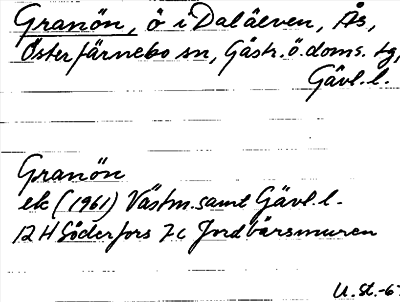 Granön, ö i Dalälven, Ås,
Österfärnebo sn, Gästr. ö. doms. tg,
Gävl. l.
Granön
ek (1961) Västm. samt Gävl. l.
12 H Söderfors 7c Jordbärsmuren
U. St. -6